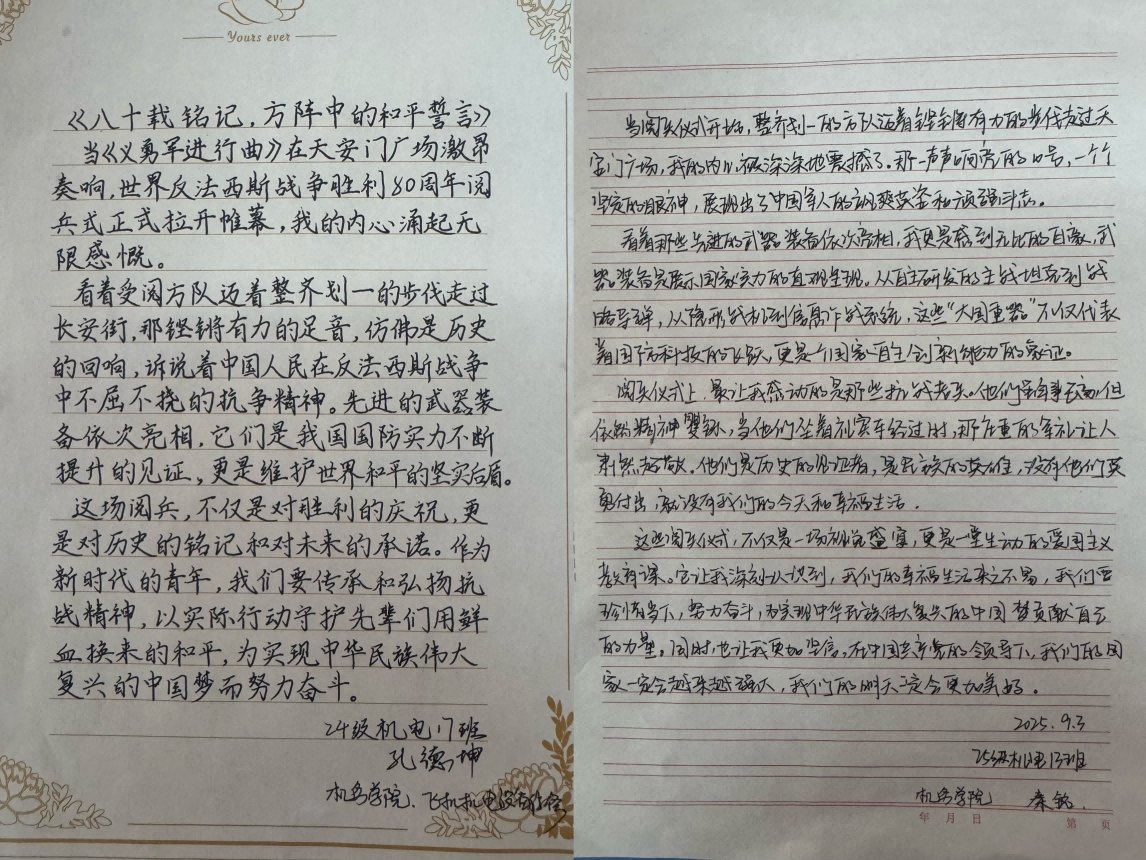 Yours ever
《八十载铭记，方阵中的和平誓言》
当《义勇军进行曲》在天安门广场激昂
奏响，世界反法西斯战争胜利80周年阅
兵式正式拉开帷幕，我的内心涌起无
限感慨。
看着受阅方队迈着整齐划一的步伐走过
长安街，那铿锵有力的足音，仿佛是历史
的回响，诉说着中国人民在反法西斯战争
中不屈不挠的抗争精神。先进的武器装
备依次亮相，它们是我国国防实力不断
提升的见证，更是维护世界和平的坚实后盾。
这场阅兵，不仅是对胜利的庆祝，更
是对历史的铭记和对未来的承诺。作为
新时代的青年，我们要传承和弘扬抗
战精神，以实际行动守护先辈们用鲜
血换来的和平，为实现中华民族伟大
复兴的中国梦而努力奋斗。
24级机电17班
孔德坤
机务学院、飞机机电设备维修
当阅兵仪式开始，整齐划一的方队迈着铿锵有力的步伐走过天
安门广场，我的内心被深深地震撼了。那一声声响亮的口号，一个个
坚定的眼神，展现出了中国军人的飒爽英姿和顽强斗志。
看着那些先进的武器装备依次亮相，我更是感到无比的自豪，武
器装备是展示国家实力的直观呈现。从自主研发的主战坦克到战
略导弹，从隐形战机到信息作战系统，这些“大国重器”不仅代表
着国防科技的飞跃，更是个国家自主创新能力的象征。
阅兵仪式上，最让我感动的是那些抗战老兵。他们虽年事已高，但
依然精神矍铄，当他们坐着礼宾车经过时，那庄重的军礼让人
肃然起敬。他们是历史的见证者，是民族的英雄，没有他们英
勇付出，就没有我们的今天和幸福生活．
这些阅兵仪式，不仅是一场视觉盛宴，更是一堂生动的爱国主义
教育课。它让我深刻认识到，我们的幸福生活来之不易，我们要
珍惜当下，努力奋斗，为实现中华民族伟大复兴的中国梦贡献自己
的力量。同时，也让我更加坚信，在中国共产党的领导下，我们的国
家一定会越来越强大，我们的明天一定会更加美好．
2025.9.3
25级机电13班
机务学院 秦铭
年 月 日 第 页